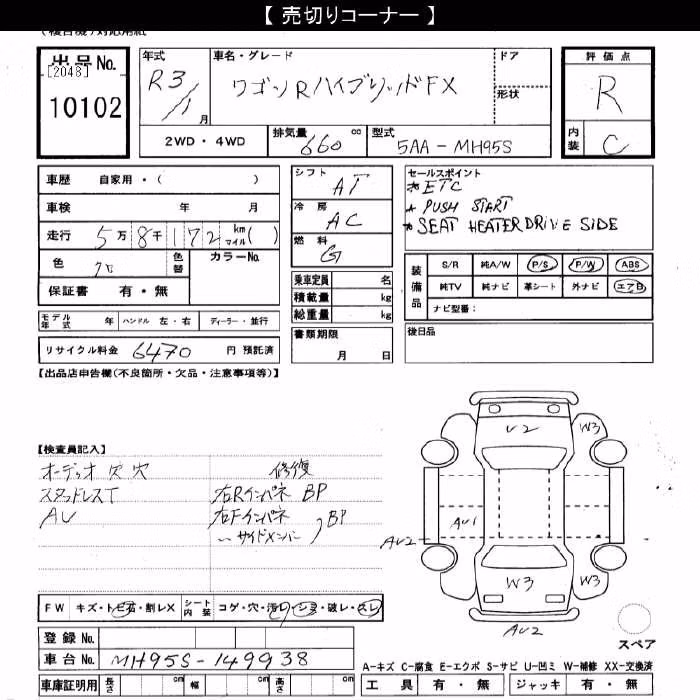 【 売切りコーナー 】
(複合機)対応用紙
出品No. [2048] 10102
年式 R3/1月
車名・グレード ワゴンRハイブリッドFX
ドア
形状
評価点 R
内装 C
2WD・4WD
排気量 660 cc
型式 5AA-MH95S
車歴 自家用・( )
車検 年 月
走行 5万8千172 km マイル( )
色
色替
カラーNo.
保証書 有・無
シフト AT
冷房 AC
燃料 G
乗車定員 名
積載量 kg
総重量 kg
セールスポイント
* ETC
* PUSH START
* SEAT HEATER DRIVE SIDE
装備品 S/R 純A/W P/S P/W ABS
純TV 純ナビ 革シート 外ナビ エアB
ナビ型番:
モデル年式 年 ハンドル 左・右 ディーラー・並行
リサイクル料金 6470 円 預託済
書類期限 月 日
後日品
【出品店申告欄(不良箇所・欠品・注意事項等)】
【検査員記入】
オーディオ欠 穴 修復
スタッドレスT 右Rインパネ BP
AU 右Fインパネ
〜サイドメンバー BP
U2 W3
AU1
AU2
W3 W3
AU2
FW キズ・トビ石・割レX シート内装 コゲ・穴・汚レ・シミ・破レ・スレ
登録No.
車台No. MH95S-149938
スペア
A-キズ C-腐食 E-エクボ S-サビ U-凹ミ W-補修 XX-交換済
車庫証明用 長さ cm 幅 cm 高さ cm
工具 有・無 ジャッキ 有・無